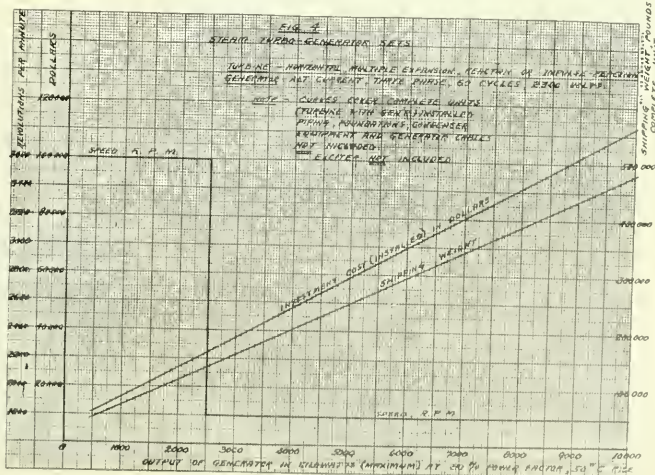 FIG 4
STEAM TURBO-GENERATOR SETS
TURBINE - HORIZONTAL MULTIPLE EXPANSION, REACTION OR IMPULSE-REACTION
GENERATOR ALT CURRENT, THREE PHASE, 60 CYCLES 2300 VOLTS
NOTE - CURVES COVER COMPLETE UNITS
(TURBINE WITH GEN'R) INSTALLED
PIPING, FOUNDATIONS, CONDENSER
EQUIPMENT AND GENERATOR CABLES
NOT INCLUDED
EXCITER NOT INCLUDED
REVOLUTIONS PER MINUTE
DOLLARS
SHIPPING WEIGHT, POUNDS
COMPLETE
SPEED R.P.M.
INVESTMENT COST (INSTALLED) IN DOLLARS
SHIPPING WEIGHT
SPEED, R.P.M
120000
100000
80000
60000
40000
20000
400,000
300,000
200,000
100,000
0 1000 2000 3000 4000 5000 6000 7000 8000 9000 10000
OUTPUT OF GENERATOR IN KILOWATTS (MAXIMUM) AT 80% POWER FACTOR, 50°C RISE